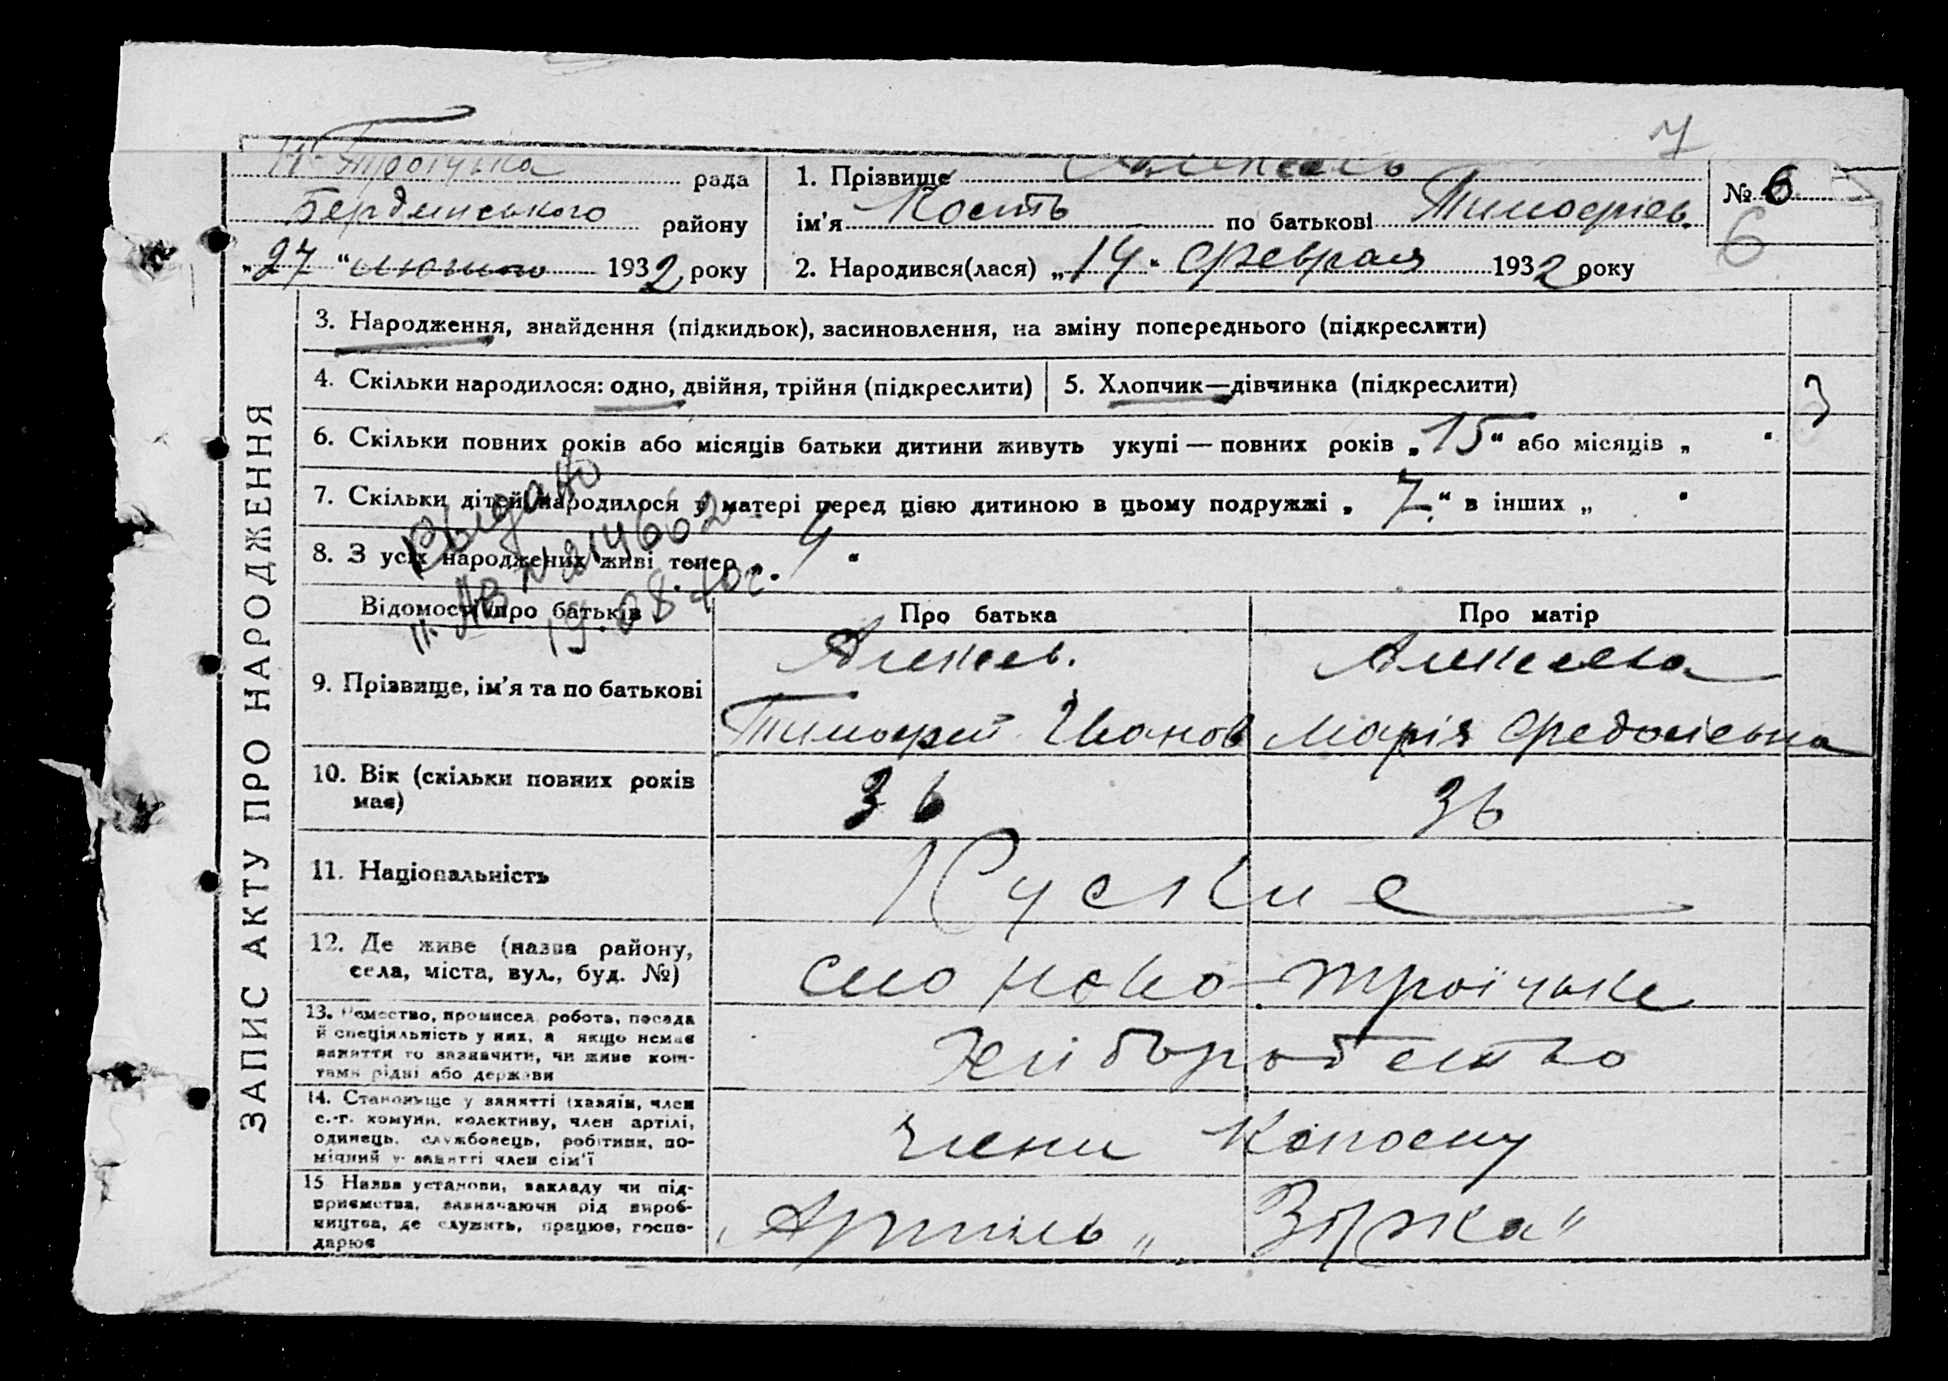 7
Н-Троіцька рада
Бердянського району
„27 “ лютого 1932 року
1. Прізвище
ім'я Кость по батькові Тимофіев.
2. Народився(лася) „14“ февраля 1932 року
№ 6
6
ЗАПИС АКТУ ПРО НАРОДЖЕННЯ
3. Народження, знайдення (підкидьок), засиновлення, на зміну попереднього (підкреслити)
4. Скільки народилося: одно, двійня, трійня (підкреслити)
5. Хлопчик—дівчинка (підкреслити)
3
6. Скільки повних років або місяців батьки дитини живуть укупі — повних років „15“ або місяців „ “
7. Скільки дітей народилося у матері перед цією дитиною в цьому подружжі „7“ в інших „ “
8. З усіх народжених живі тепер „4“
Выдано
19.08.40г.
Відомості про батьків
Про батька
Про матір
9. Прізвище, ім'я та по батькові
Тимофій Іванов
Марія Федосієвна
10. Вік (скільки повних років
має)
36
36
11. Національність
12. Де живе (назва району,
села, міста, вул., буд. №)
село Ново-Троїцьке
13. Ремество, промисел, робота, посада
й спеціяльність у них, а якщо немає
заняття то зазначити, чи живе кош-
тами рідні або держави
Хліборобство
14. Становище у занятті (хазяїн, член
с.-г. комуни, колективу, член артілі,
одинець, службовець, робітник, по-
мічний у занятті член сім'ї
члени колгоспу
15 Назва установи, закладу чи під-
приємства, зазначаючи рід вироб-
ництва, де служить, працює, госпо-
дарює
Артіль „Зірка“